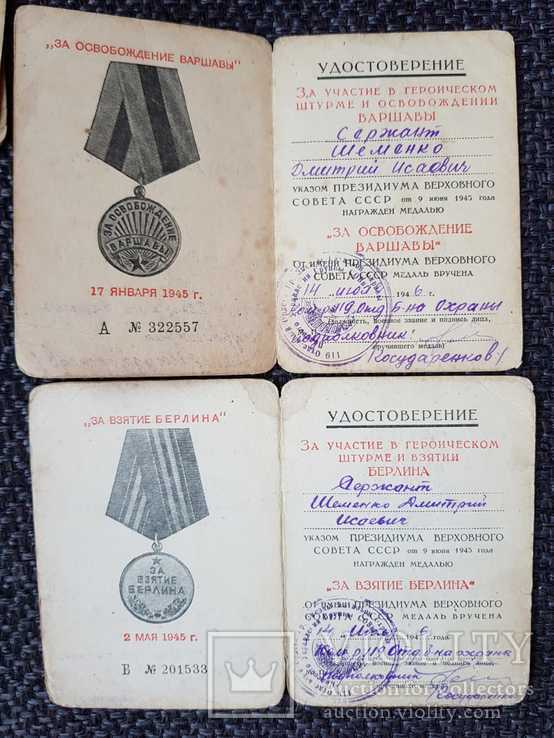 „ЗА ОСВОБОЖДЕНИЕ ВАРШАВЫ"
ЗА ОСВОБОЖДЕНИЕ
ВАРШАВЫ
17 ЯНВАРЯ 1945 г.
А № 322557
УДОСТОВЕРЕНИЕ
ЗА УЧАСТИЕ В ГЕРОИЧЕСКОМ
ШТУРМЕ И ОСВОБОЖДЕНИИ
ВАРШАВЫ
Сержант
Шеменко
Дмитрий Исаевич
УКАЗОМ ПРЕЗИДИУМА ВЕРХОВНОГО
СОВЕТА СССР от 9 июня 1945 года
НАГРАЖДЕН МЕДАЛЬЮ
„ЗА ОСВОБОЖДЕНИЕ
ВАРШАВЫ"
ОТ ИМЕНИ ПРЕЗИДИУМА ВЕРХОВНОГО
СОВЕТА СССР МЕДАЛЬ ВРУЧЕНА
14 июля 1946 г.
119 Отд б-на Охраны
Должность, воинское звание и подпись лица,
подполковник
вручившего медаль)
Государенков
611
„ЗА ВЗЯТИЕ БЕРЛИНА"
ЗА
ВЗЯТИЕ
БЕРЛИНА
2 МАЯ 1945 г.
Б № 201533
УДОСТОВЕРЕНИЕ
ЗА УЧАСТИЕ В ГЕРОИЧЕСКОМ
ШТУРМЕ И ВЗЯТИИ
БЕРЛИНА
Сержант
Шеменко Дмитрий
Исаевич
УКАЗОМ ПРЕЗИДИУМА ВЕРХОВНОГО
СОВЕТА СССР от 9 июня 1945 года
НАГРАЖДЕН МЕДАЛЬЮ
„ЗА ВЗЯТИЕ БЕРЛИНА"
ОТ ИМЕНИ ПРЕЗИДИУМА ВЕРХОВНОГО
СОВЕТА СССР МЕДАЛЬ ВРУЧЕНА
14 Июля 1946 года
119 Отд б-на охраны
подполковник
VIOLITY
auction.violity.com